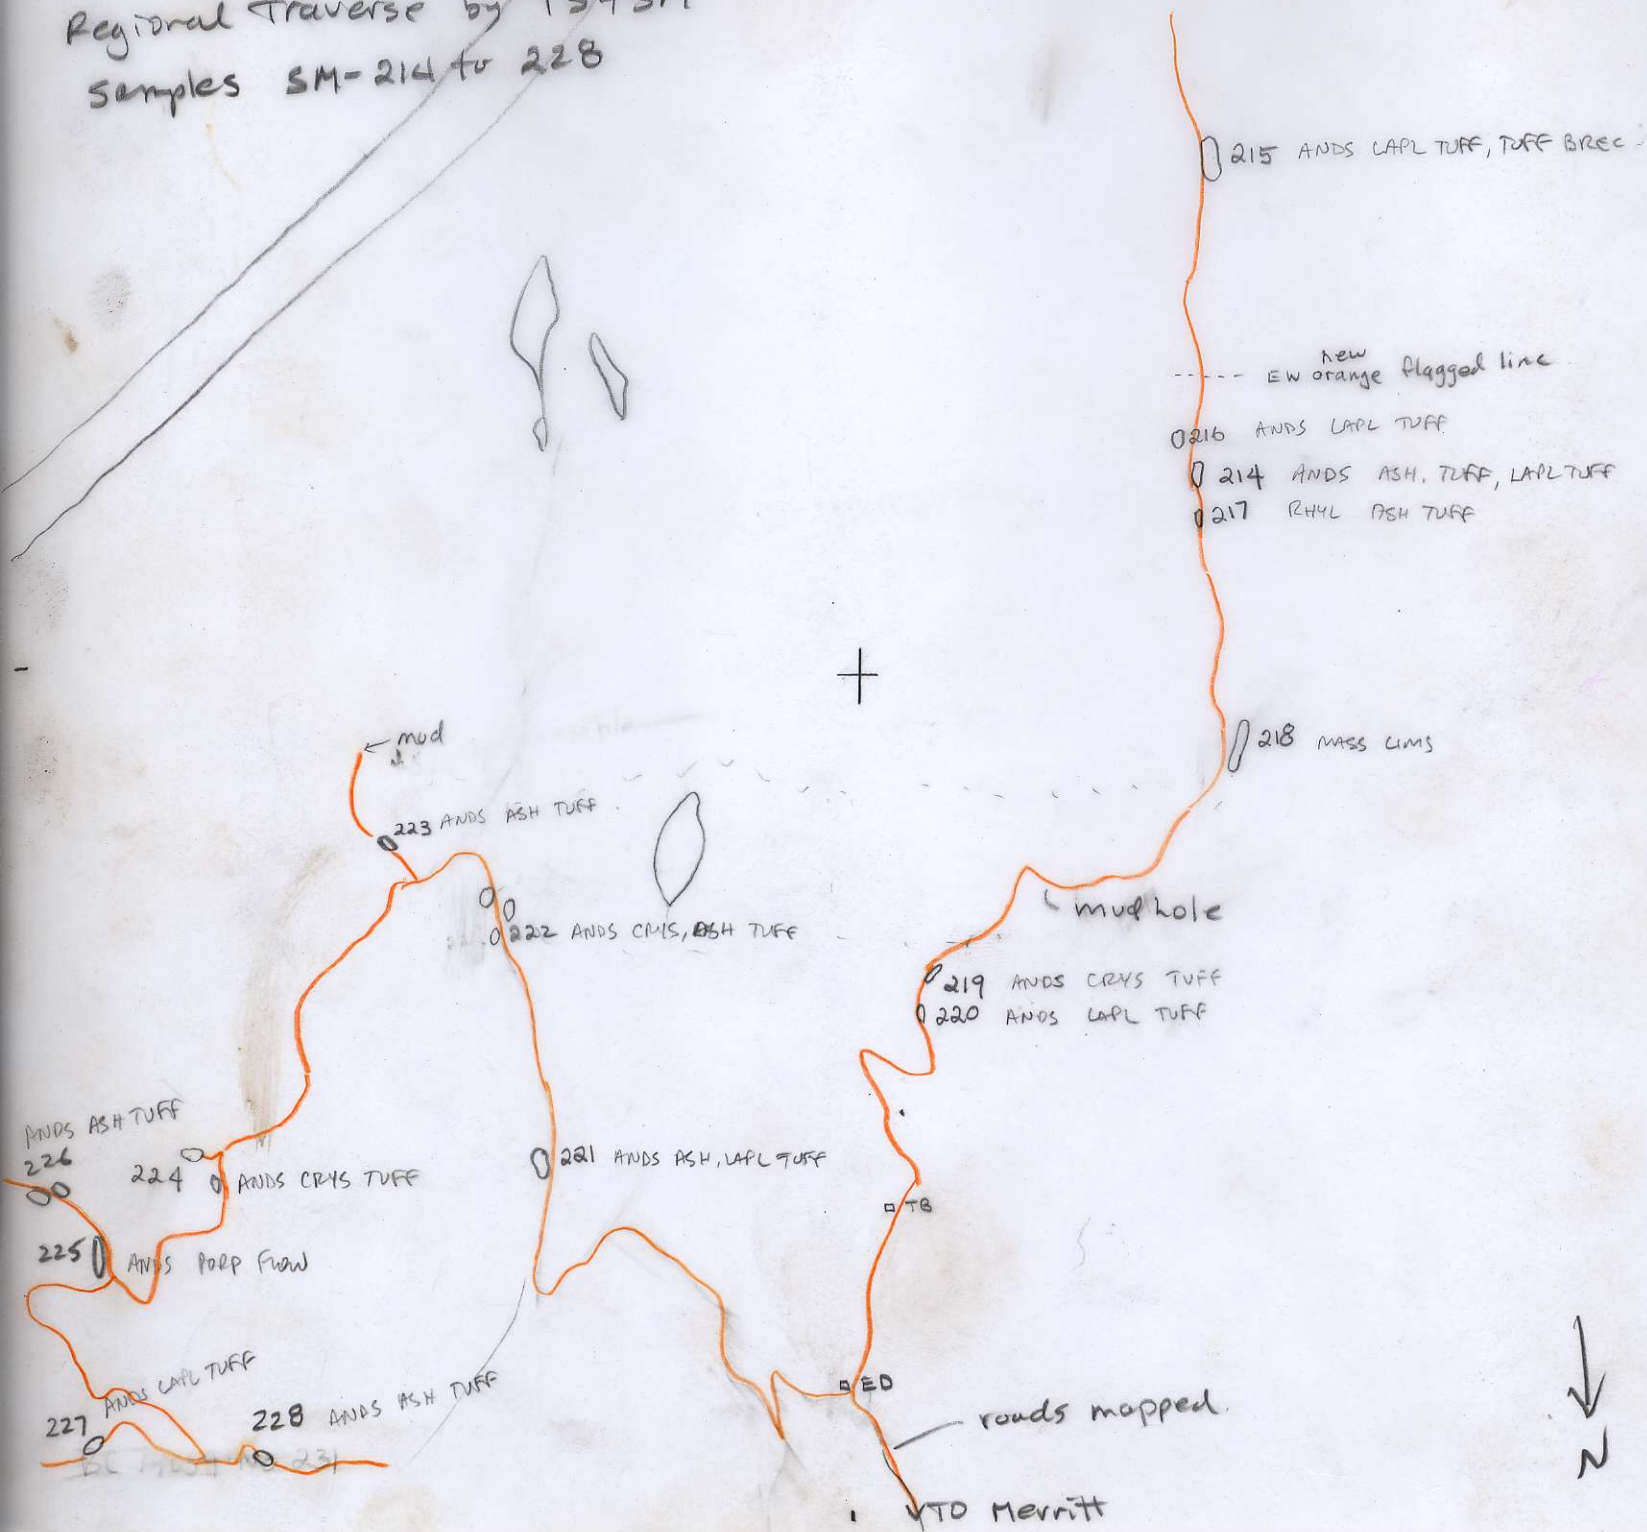 Regional Traverse by
Samples SM-214 to 228
215 ANDS LAPL TUFF, TUFF BREC
new
EW orange flagged line
216 ANDS LAPL TUFF
214 ANDS ASH. TUFF, LAPL TUFF
217 RHYL ASH TUFF
218 MASS LIMS
mud
223 ANDS ASH TUFF
mudhole
222 ANDS CRYS, ASH TUFF
219 ANDS CRYS TUFF
220 ANDS LAPL TUFF
ANDS ASH TUFF
226
224 ANDS CRYS TUFF
221 ANDS ASH, LAPL TUFF
TB
225 ANDS PORP FLOW
ANDS LAPL TUFF
227
228 ANDS ASH TUFF
ED
roads mapped.
TO Merritt
N